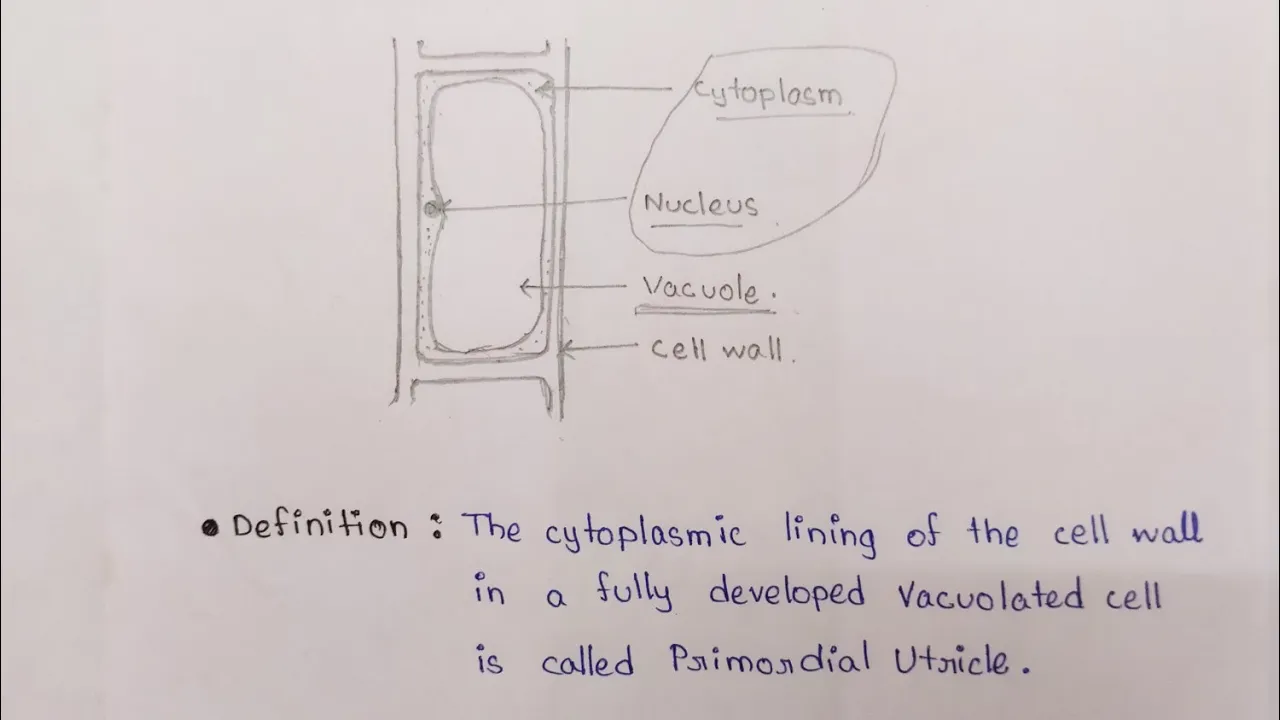 Cytoplasm
Nucleus
Vacuole.
cell wall.
• Definition : The cytoplasmic lining of the cell wall
in a fully developed vacuolated cell
is called Primordial Utricle.